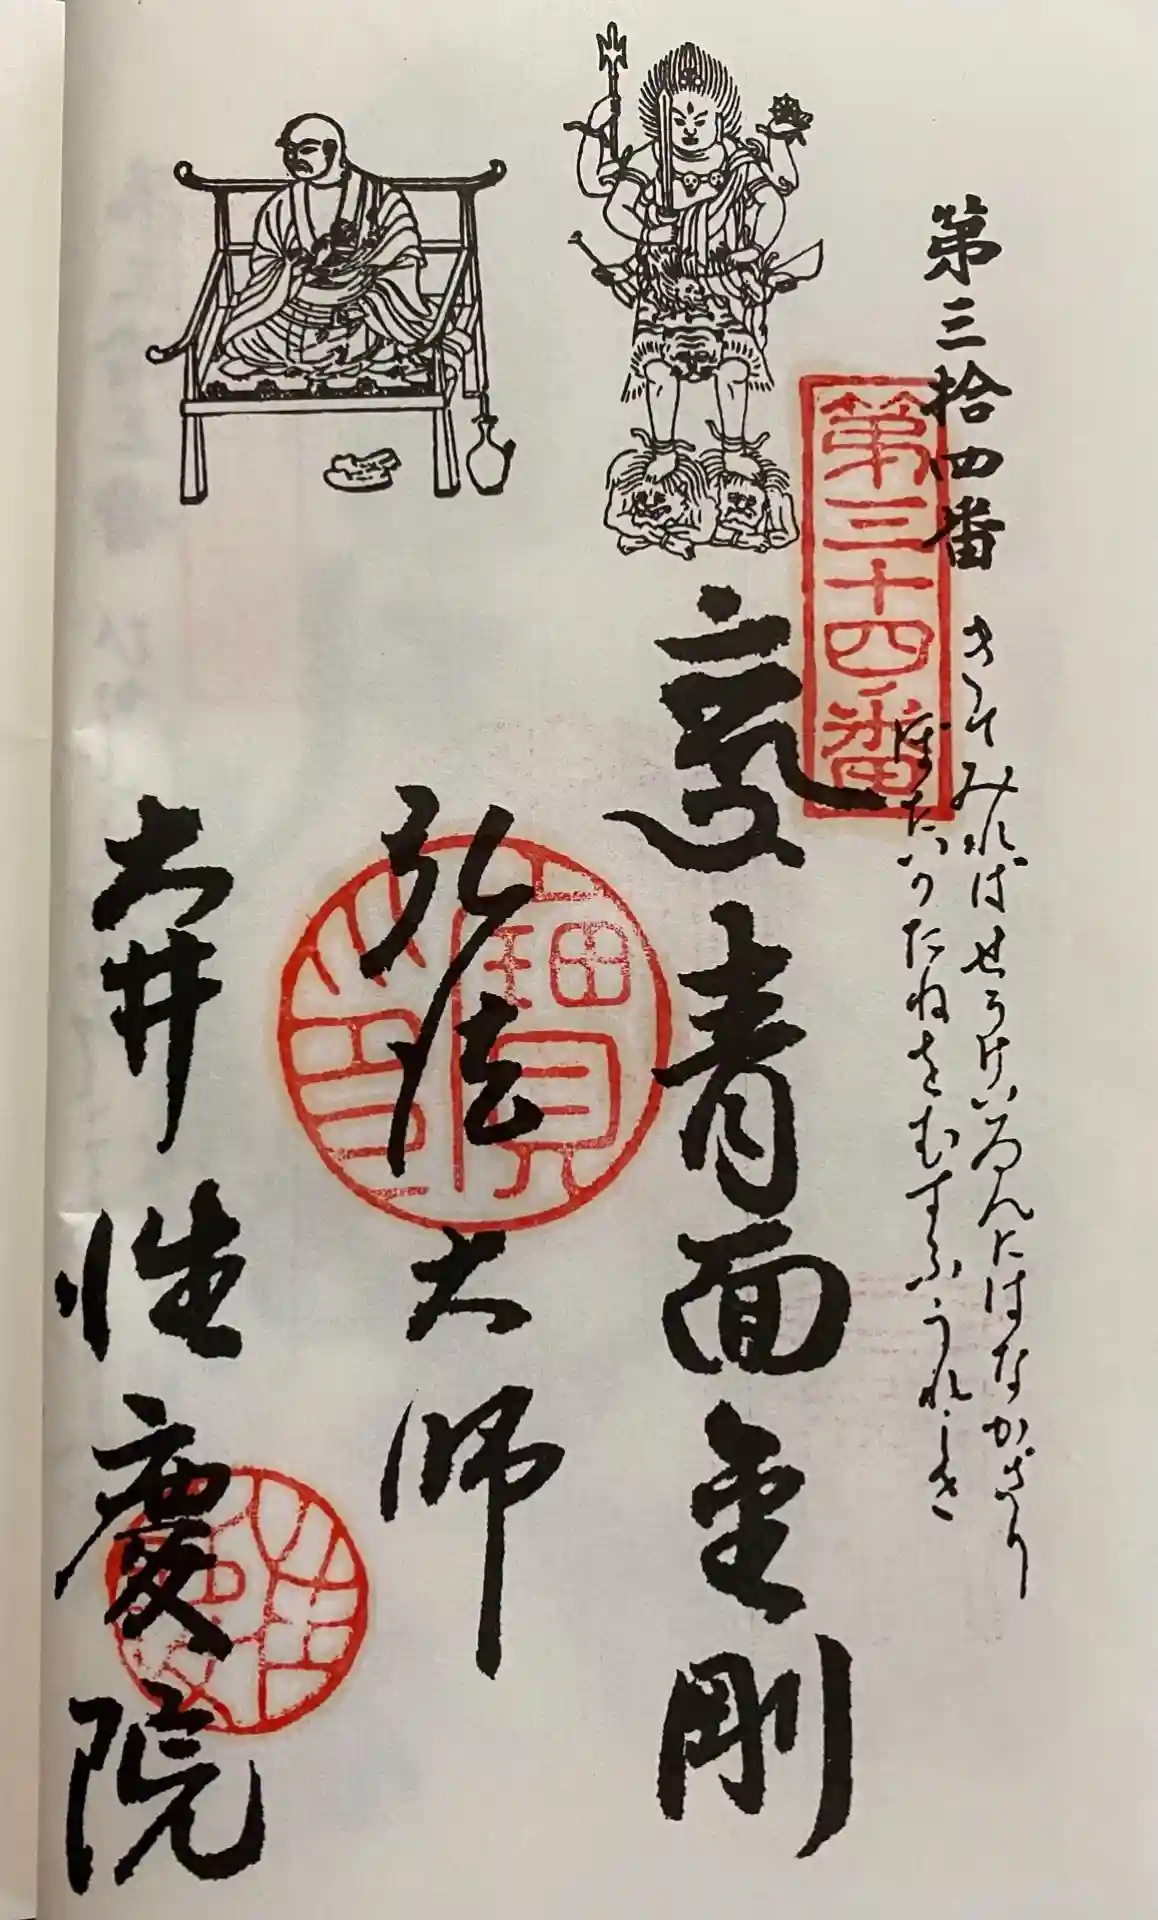 第三拾四番
きてみればせうけいゐんにはなかざり
ぼたいのたねをむすふうれしさ
第三十四番
青面金剛
弘法大師
大井 性慶院